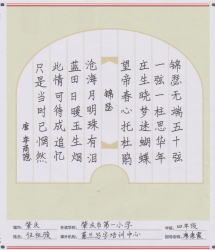 锦瑟无端五十弦
一弦一柱思华年
庄生晓梦迷蝴蝶
望帝春心托杜鹃
锦瑟
沧海月明珠有泪
蓝田日暖玉生烟
此情可待成追忆
只是当时已惘然
唐 李商隐
肇庆
肇庆市第一小学
四年级